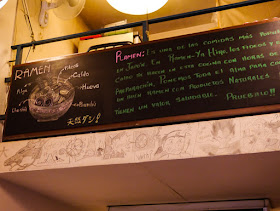 RAMEN:
Fideos
Caldo
Alga
Huevo
Bambú
天然ダシ!
Ramen: Es una de las comidas más
la Japón. En Ramen-Ya Hiro, los fideos y el
caldo se hacen en esta cocina con horas de
preparación. Ponemos toda el alma para
un buen ramen con productos naturales
tienen un valor saludable. Pruebalo!!